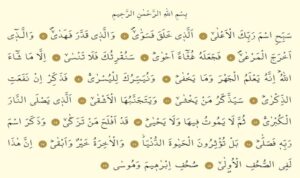 بِسْمِ اللهِ الرَّحْمٰنِ الرَّحِيمِ
سَبِّحِ اسْمَ رَبِّكَ الْاَعْلٰىۙ ﴿١﴾ اَلَّذٖي خَلَقَ فَسَوّٰىۙ ﴿٢﴾ وَالَّذٖي قَدَّرَ فَهَدٰىۙ ﴿٣﴾ وَالَّذٖٓي
اَخْرَجَ الْمَرْعٰىۙ ﴿٤﴾ فَجَعَلَهُ غُثَٓاءً اَحْوٰىۜ ﴿٥﴾ سَنُقْرِئُكَ فَلَا تَنْسٰىۙ ﴿٦﴾ اِلَّا مَا شَٓاءَ
اللهُۜ اِنَّهُ يَعْلَمُ الْجَهْرَ وَمَا يَخْفٰىۜ ﴿٧﴾ وَنُيَسِّرُكَ لِلْيُسْرٰىۚ ﴿٨﴾ فَذَكِّرْ اِنْ نَفَعَتِ
الذِّكْرٰىۜ ﴿٩﴾ سَيَذَّكَّرُ مَنْ يَخْشٰىۙ ﴿١٠﴾ وَيَتَجَنَّبُهَا الْاَشْقٰىۙ ﴿١١﴾ اَلَّذٖي يَصْلَى النَّارَ
الْكُبْرٰىۚ ﴿١٢﴾ ثُمَّ لَا يَمُوتُ فٖيهَا وَلَا يَحْيٰىۜ ﴿١٣﴾ قَدْ اَفْلَحَ مَنْ تَزَكّٰىۙ ﴿١٤﴾ وَذَكَرَ اسْمَ
رَبِّهٖ فَصَلّٰىۜ ﴿١٥﴾ بَلْ تُؤْثِرُونَ الْحَيٰوةَ الدُّنْيَاۘ ﴿١٦﴾ وَالْاٰخِرَةُ خَيْرٌ وَاَبْقٰىۜ ﴿١٧﴾ اِنَّ هٰذَا
لَفِي الصُّحُفِ الْاُولٰىۙ ﴿١٨﴾ صُحُفِ اِبْرٰهٖيمَ وَمُوسٰى ﴿١٩﴾